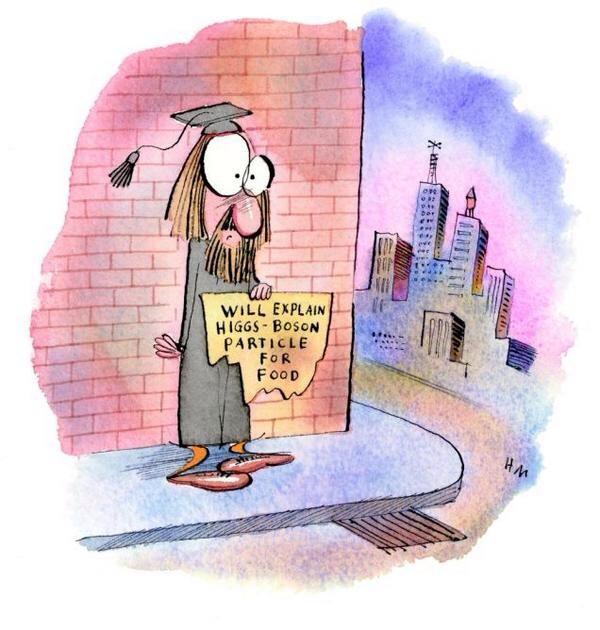 WILL EXPLAIN
HIGGS-BOSON
PARTICLE
FOR
FOOD
HM